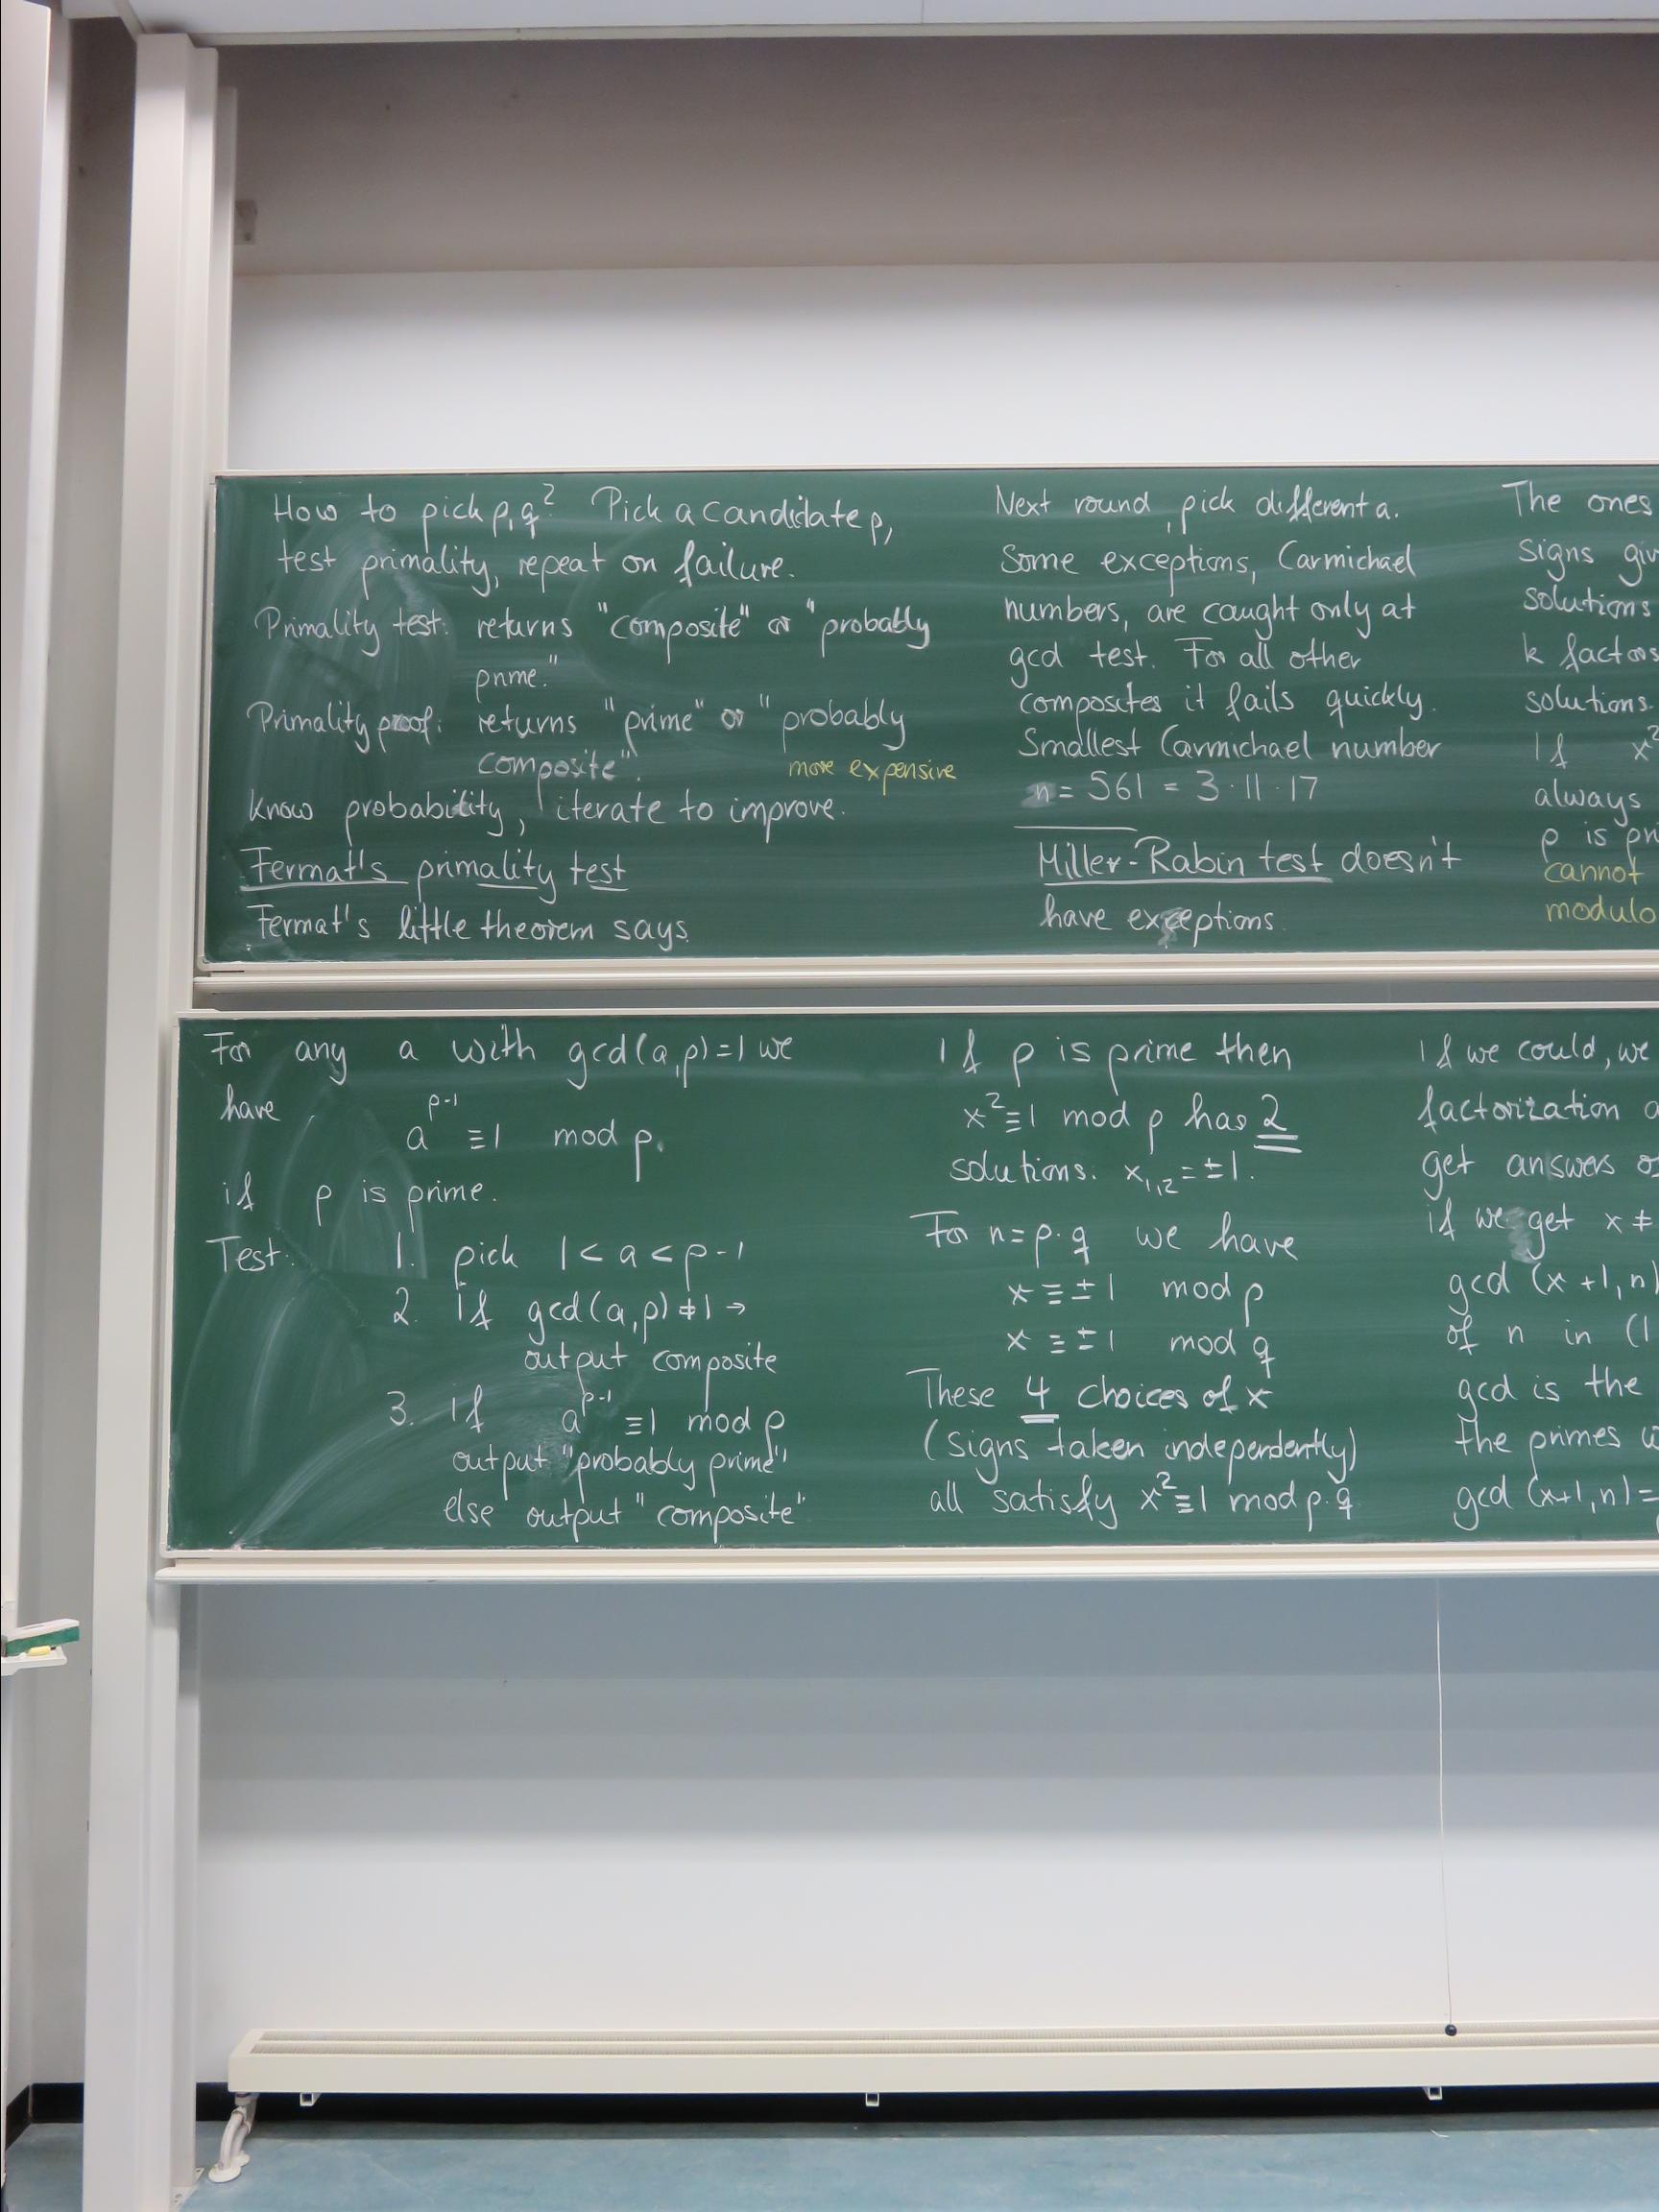 How to pick p,q? Pick a candidate p,
test primality, repeat on failure.
Primality test: returns "composite" or "probably
prime."
Primality proof: returns "prime" or "probably
composite". more expensive
Know probability, iterate to improve.
Fermat's primality test
Fermat's little theorem says
For any a with gcd(a,p)=1 we
have
a^{p-1} ≡ 1 mod p.
if p is prime.
Test: 1. pick 1 < a < p-1
2. if gcd(a,p) ≠ 1 →
output composite
3. if a^{p-1} ≡ 1 mod p
output "probably prime"
else output "composite"
Next round, pick different a.
Some exceptions, Carmichael
numbers, are caught only at
gcd test. For all other
composites it fails quickly.
Smallest Carmichael number
n = 561 = 3·11·17
Miller-Rabin test doesn't
have exceptions.
If p is prime then
x² ≡ 1 mod p has 2
solutions. x₁,₂ = ±1.
For n = p·q we have
x ≡ ±1 mod p
x ≡ ±1 mod q
These 4 choices of x
(signs taken independently)
all satisfy x² ≡ 1 mod p·q
The ones
signs giv
solutions
k factors
solutions.
If x²
always
p is pri
cannot
modulo
If we could, we
factorization a
get answers o
if we get x ≠
gcd (x+1, n)
of n in (1
gcd is the
the primes w
gcd (x+1, n) =